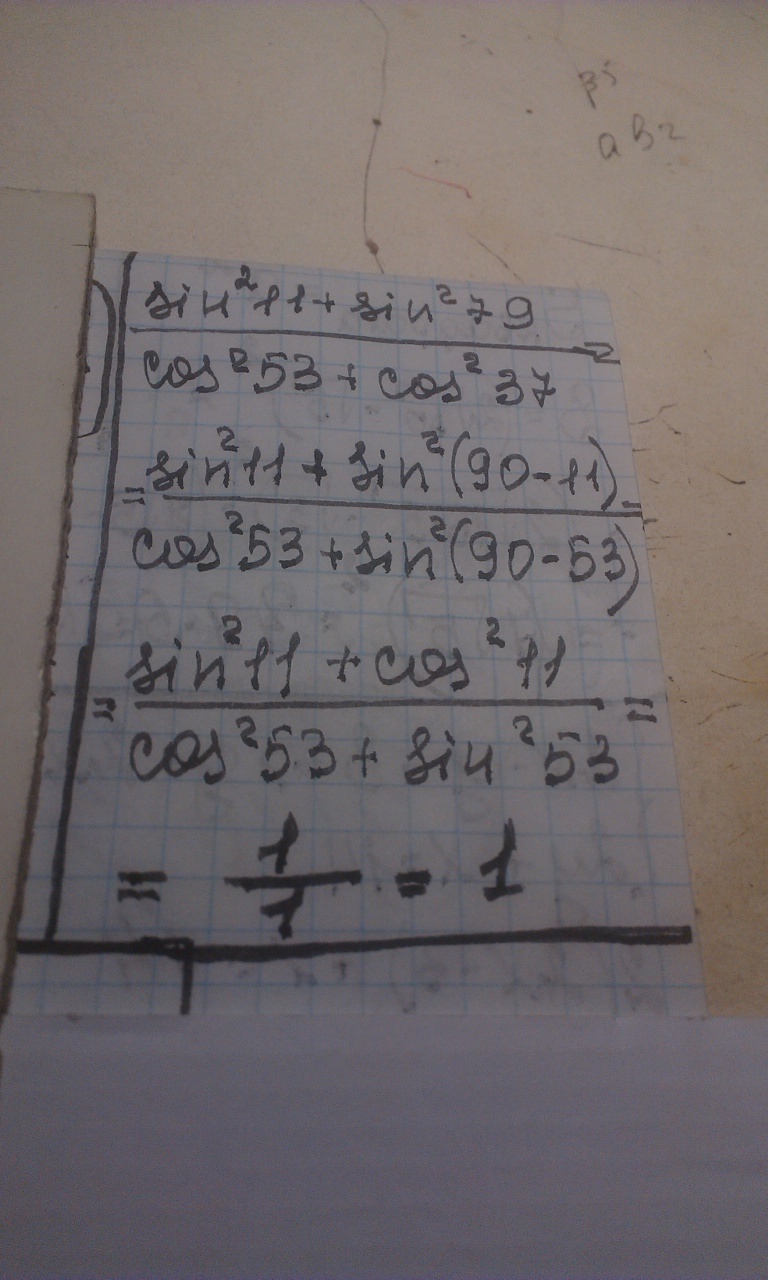 β5
aB2
sin²11+sin²79
cos²53+cos²37
=
= sin²11+sin²(90-11)
cos²53+sin²(90-53)
=
= sin²11+cos²11
cos²53+sin²53
=
= 1/1 = 1